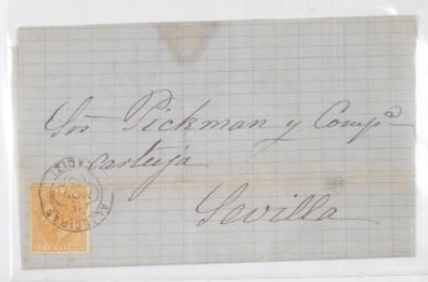 Sres Pickman y Compª
Cartuja
Sevilla
ALGECIRAS
(CADIZ)